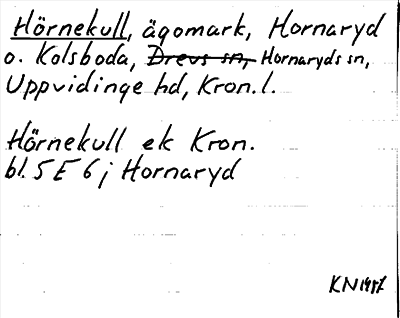 Hörnekull, ägomark, Hornaryd
o. Kolsboda, Drevs sn, Hornaryds sn,
Uppvidinge hd, Kron. l.
Hörnekull ek Kron.
bl. 5 E 6 j Hornaryd
KN